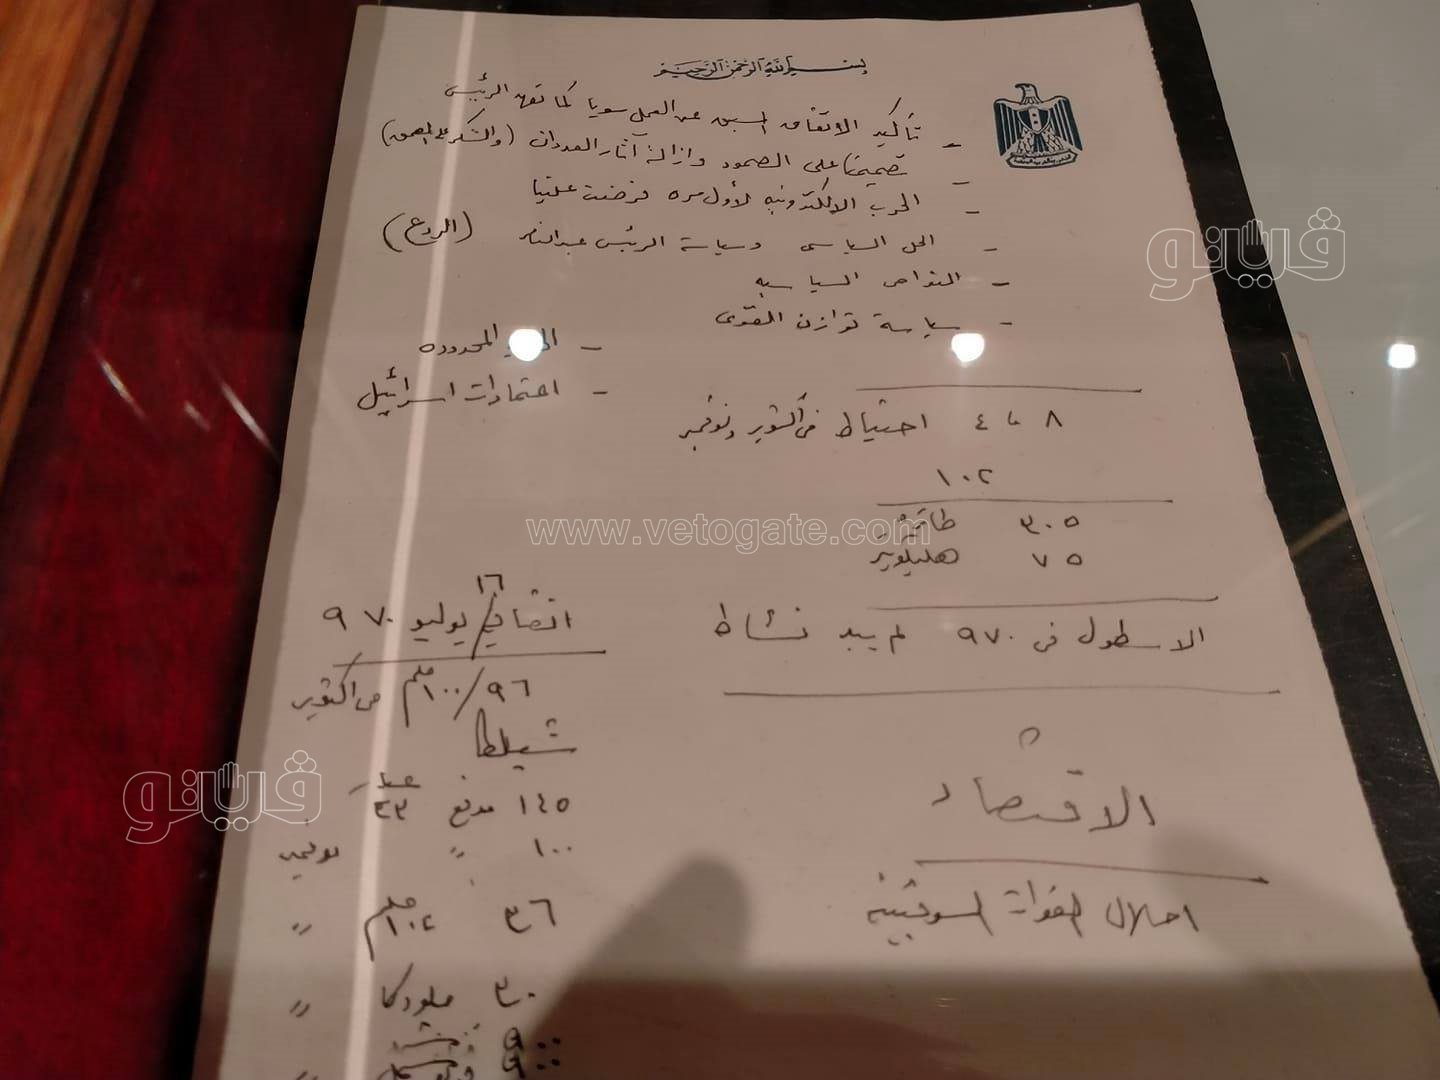 بسم الله الرحمن الرحيم
- تأكيد الاتفاق المسبق عن العمل سويا كما تعهد الرئيس
- تصميمنا على الصمود وازالة آثار العدوان (والشكر على
- الحرب الالكترونيه لأول مره فرضت علينا
- الحل السياسى وسياسة الرئيس عبد الناصر (الردع)
- النواحى السياسيه
- سياسة توازن القوى
- المحدوده
- احتمادات اسرائيل
٨ ٤ احتياط فى أكتوبر ونوفمبر
١٠٢
٣٠٥ طائرة
٧٥ هليكوبتر
الاسطول فى ٩٧٠ لم يبد نشاط
الاقتصاد
احلال القوات السوفيتيه
اتفاقية ١٦ يوليو ٩٧٠
٩٦ / ١٠٠ ملم فى اكتوبر
شيلكا
١٤٥ مدفع عيار ٢٣
١٠٠ " نوفمبر
٣٦ ملم "
٣٠ "
٩٠٠
٩٠٠ "
فيتو
فيتو
www.vetogate.com